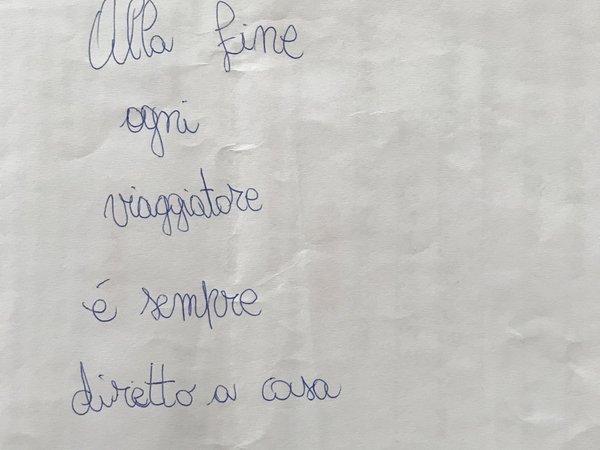 Alla fine
ogni
viaggiatore
é sempre
diretto a casa